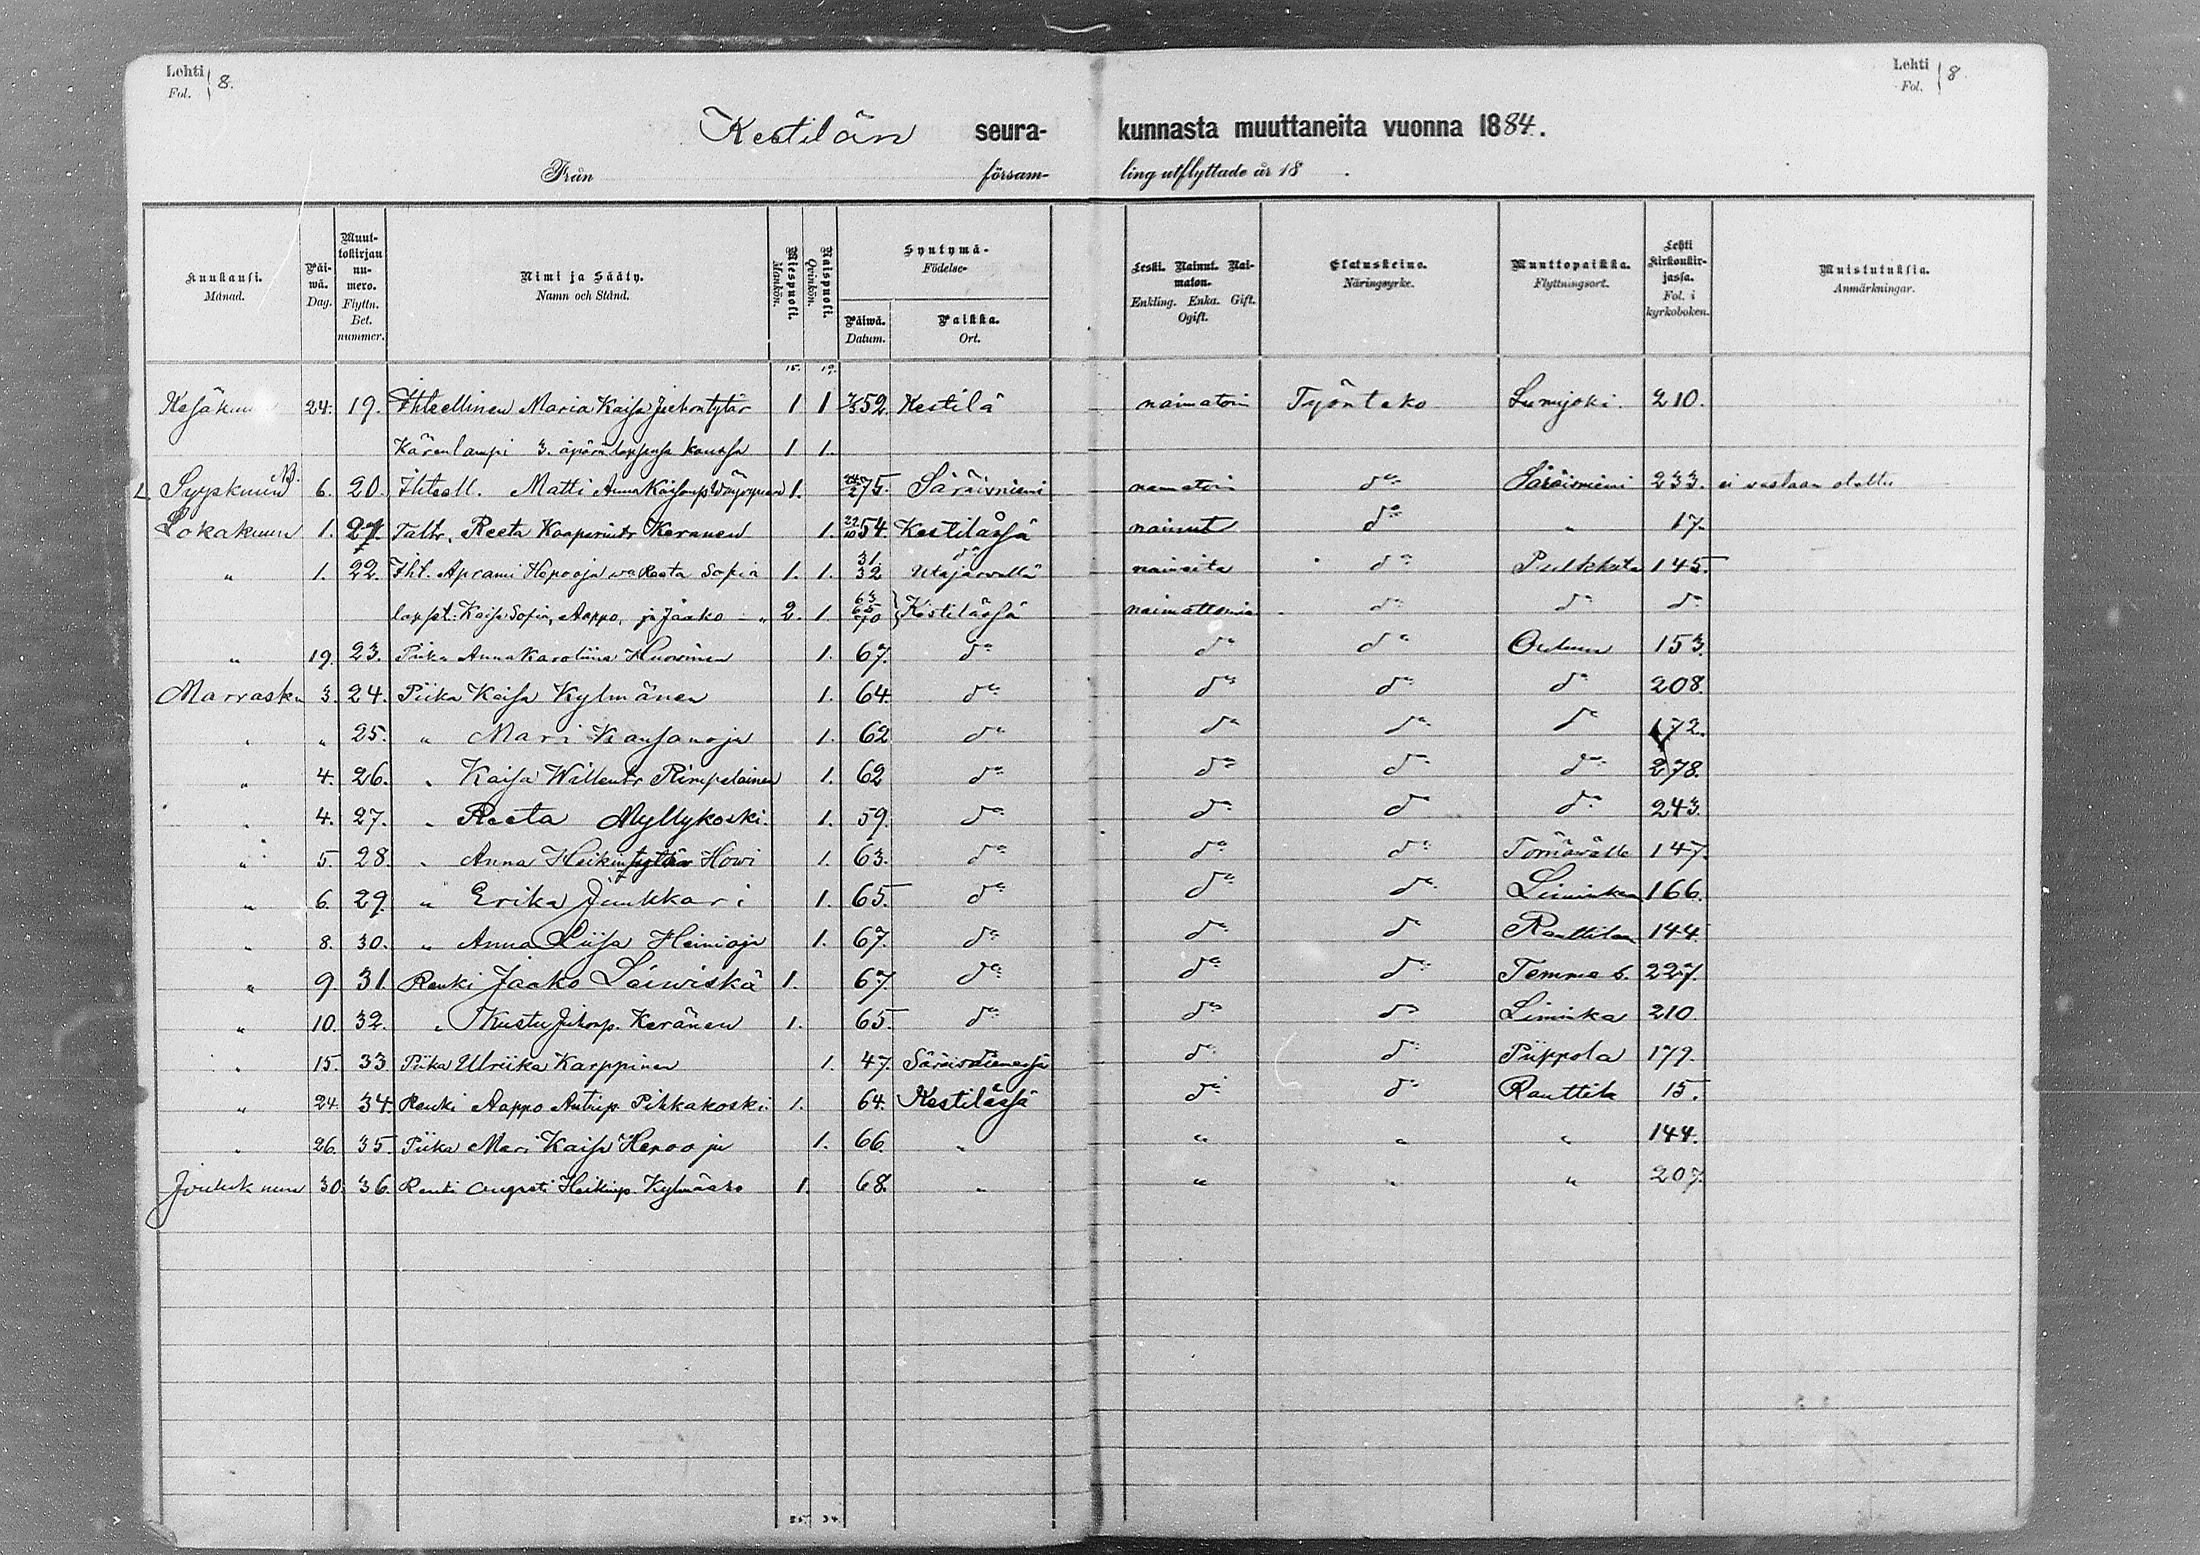 Lehti Fol. 8.
Lehti Fol. 8.
Kestilän seurakunnasta muuttaneita vuonna 1884.
Från församling utflyttade år 18 .
Kuukausi. Månad. Päiwä. Dag. Muuttokirjan numero. Flyttn. Bet. nummer. Nimi ja Sääty. Namn och Stånd. Miespuoli. Mankön. Naispuoli. Qvinkön. Syntymä- Födelse- Päiwä. Datum. Paikka. Ort. Leski. Nainut. Naimaton. Enkling. Enka. Gift. Ogift. Elatuskeino. Näringsyrke. Muuttopaikka. Flyttningsort. Lehti kirkonkirjassa. Fol. i kyrkoboken. Muistutuksia. Anmärkningar.
15. 19.
Kesäkuun 24. 19. Ihteellinen Maria Kaisa Juhontytär 1 1 52 Kestilä naimatoin Työnteko Lumijoki. 210.
Kärenlampi 3. äpärä lapsensa kanssa 1 1.
Syyskuun 6. 20. Ihteell. Matti Anna Kaisanp. 1. 75. Säräisniemi naimatoin do Säräisniemi 233. ei vastaan otettu
Lokakuun 1. 21. Taltr. Reeta Kaaperintr Keränen 1. 54 Kestilässä nainut do " 17.
" 1. 22. Iht. Aprami Hepooja wa Reeta Sofia 1. 1. 31 32 do Utajärwellä naineita do Pulkkila 145.
lapset: Kaisa Sofia, Aappo, ja Jaako " 2. 1. 63 65 70 Kestilässä naimattomia do do do
" 19. 23. Piika Anna Karoliina Huowinen 1. 67. do do do Ouluun 153.
Marrask. 3. 24. Piika Kaisa Kylmänen 1. 64. do do do do 208.
" " 25. " Mari Kansanoja 1. 62 do do do do 172.
" 4. 26. " Kaisa Willentr Rimpeläinen 1. 62 do do do do 278.
" 4. 27. " Reeta Myllykoski. 1. 59. do do do do 243.
" 5. 28. " Anna Heikintytär Howi 1. 63. do do do 147.
" 6. 29. " Erika Junkkari 1. 65. do do do Liminkaan 166.
" 8. 30. " Anna Liisa Heinioja 1. 67. do do doRanttilaan 144.
" 9 31. Renki Jaako Leiwiskä 1. 67 do do do Temmes. 227.
" 10. 32. " Kustu Juhonp. Keränen 1. 65. do do do Liminka 210.
" 15. 33 Piika Ulriika Karppinen 1. 47. Säräisniemessä do do Piippola 179.
" 24. 34. Renki Aappo Antinp. Pikkakoski. 1. 64. Kestilässä do do Ranttila 15.
" 26. 35. Piika Mari Kaisa Hepooja 1. 66. " " " " 144.
Joulukuun 30. 36. Renki Augusti Heikinp. Kylmäaho 1. 68. " " " " 207.
25. 34